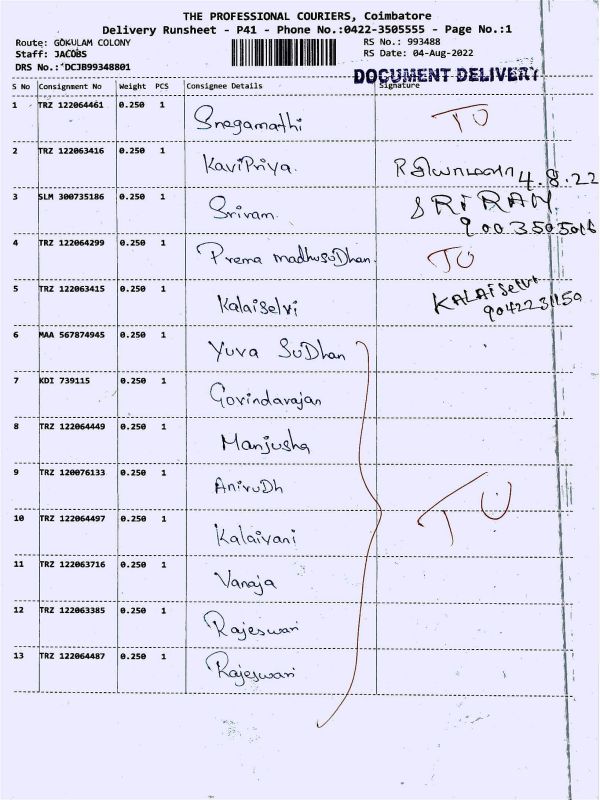 THE PROFESSIONAL COURIERS, Coimbatore
Delivery Runsheet - P41 - Phone No.:0422-3505555 - Page No.:1
Route: GOKULAM COLONY RS No.: 993488
Staff: JACOBS RS Date: 04-Aug-2022
DRS No.: DCJB99348801
DOCUMENT DELIVERY
S No Consignment No Weight PCS Consignee Details Signature
1 TRZ 122064461 0.250 1 Snegamathi TO
2 TRZ 122063416 0.250 1 KaviPriya. 4.8.22
3 SLM 300735186 0.250 1 Sriram. SRIRAM
9003505016
4 TRZ 122064299 0.250 1 Prema madhusuDhan. TO
5 TRZ 122063415 0.250 1 Kalaiselvi KALAiselvi
9042231159
6 MAA 567874945 0.250 1 Yuva SuDhan
7 KDI 739115 0.250 1 Govindarajan
8 TRZ 122064449 0.250 1 Manjusha
9 TRZ 120076133 0.250 1 AniruDh
TO
10 TRZ 122064497 0.250 1 Kalaivani
11 TRZ 122063716 0.250 1 Vanaja
12 TRZ 122063385 0.250 1 Rajeswari
13 TRZ 122064487 0.250 1 Rajeswari